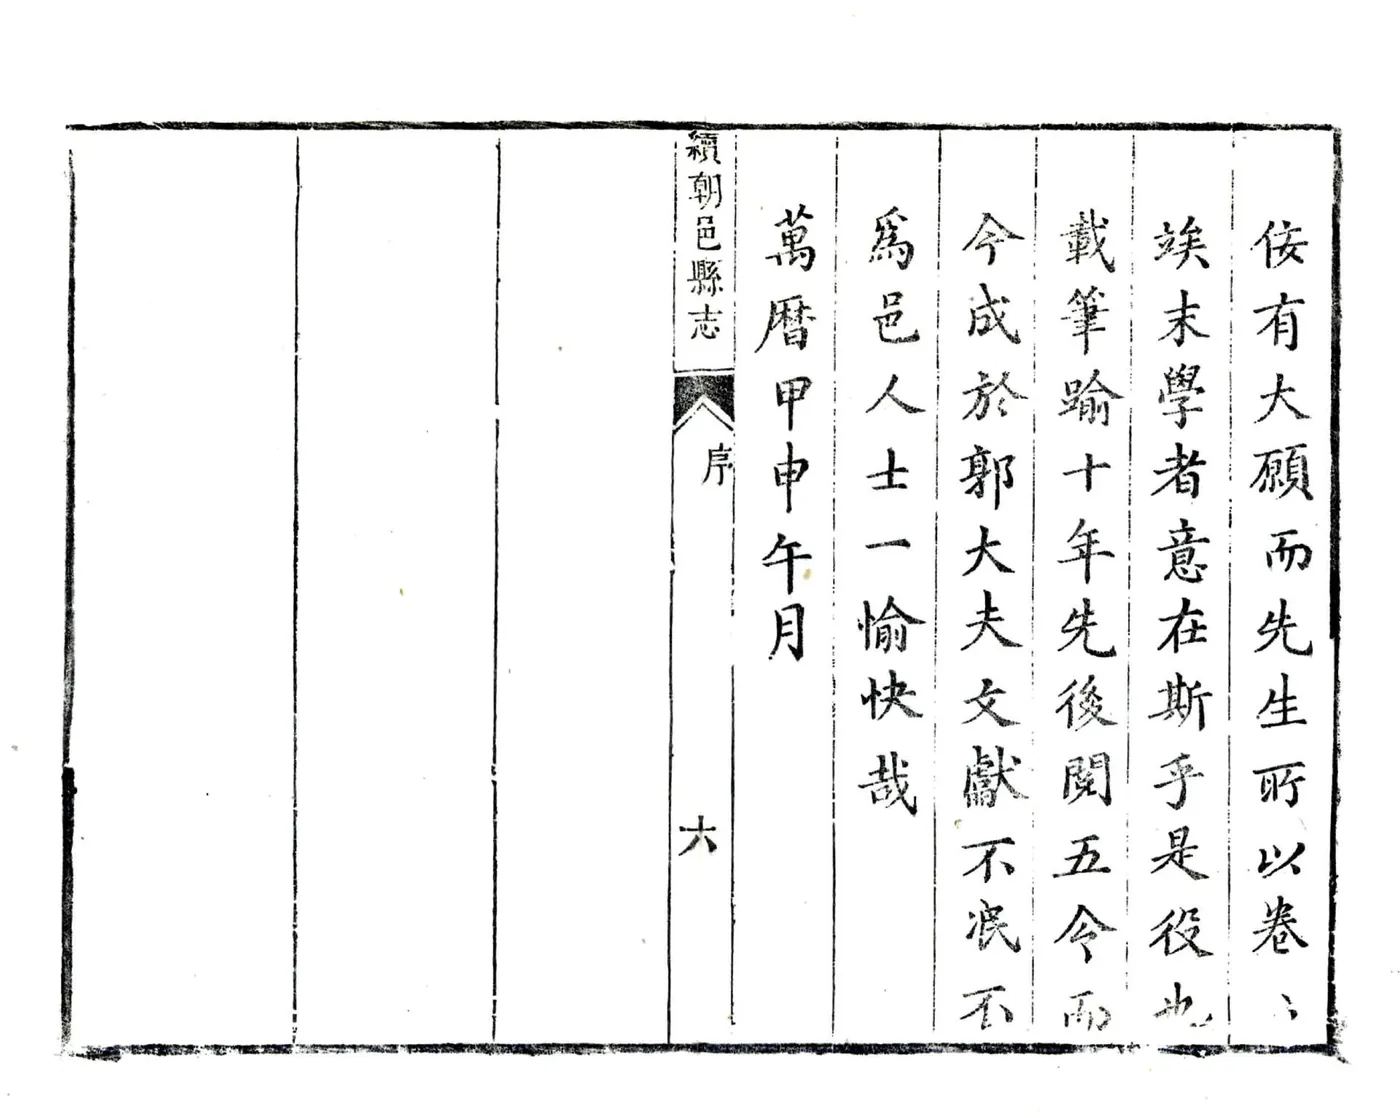 侫有大願而先生所以卷
竢末學者意在斯乎是役也
載筆踰十年先後閱五令而
今成於郭大夫文獻不泯不
爲邑人士一愉快哉
萬曆甲申午月
續朝邑縣志
序
六